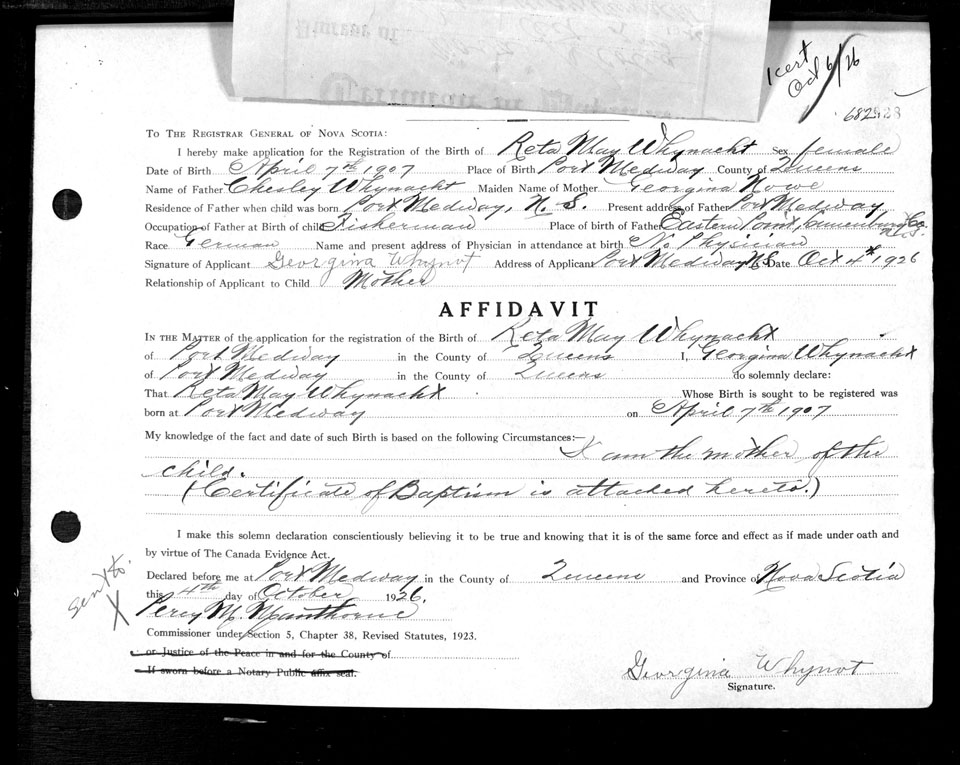 Cert
Oct 6/26
682
TO THE REGISTRAR GENERAL OF NOVA SCOTIA:
I hereby make application for the Registration of the Birth of Reta May Whynacht Sex female
Date of Birth April 7th 1907 Place of Birth Port Medway County of Queens
Name of Father Chesley Whynacht Maiden Name of Mother Georgina Howe
Residence of Father when child was born Port Medway, N. S. Present address of Father Port Medway
Occupation of Father at Birth of child Fisherman Place of birth of Father Eastern Point, Lunenburg Co. N.S.
Race German Name and present address of Physician in attendance at birth No Physician
Signature of Applicant Georgina Whynot Address of Applicant Port Medway N.S. Date Oct 4th 1926
Relationship of Applicant to Child Mother
AFFIDAVIT
IN THE MATTER of the application for the registration of the Birth of Reta May Whynacht
of Port Medway in the County of Queens I, Georgina Whynacht
of Port Medway in the County of Queens do solemnly declare:
That Reta May Whynacht Whose Birth is sought to be registered was
born at Port Medway on April 7th 1907
My knowledge of the fact and date of such Birth is based on the following Circumstances:—
I am the mother of the
child.
(Certificate of Baptism is attached hereto.)
I make this solemn declaration conscientiously believing it to be true and knowing that it is of the same force and effect as if made under oath and
by virtue of The Canada Evidence Act.
Declared before me at Port Medway in the County of Queens and Province of Nova Scotia
this 4th day of October 1926.
Percy M.
Commissioner under Section 5, Chapter 38, Revised Statutes, 1923.
or Justice of the Peace in and for the County of
If sworn before a Notary Public affix seal.
Georgina Whynot
Signature.
sent to.
X